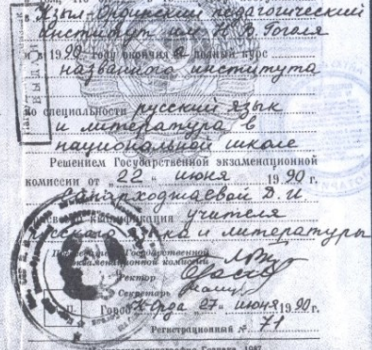 Кзыл-Ординский педагогический
институт им. Н. В. Гоголя
и в 1990 году окончила полный курс
названного института
по специальности русский язык
и литература в
национальной школе
Решением Государственной экзаменационной
комиссии от „22“ июня 1990 г.
Д. И
присвоена квалификация учителя
русского языка и литературы
Председатель Государственной
экзаменационной комиссии
Ректор
Секретарь
М. П.
Город К-Орда 27 июня 1990 г.
Регистрационный № 71